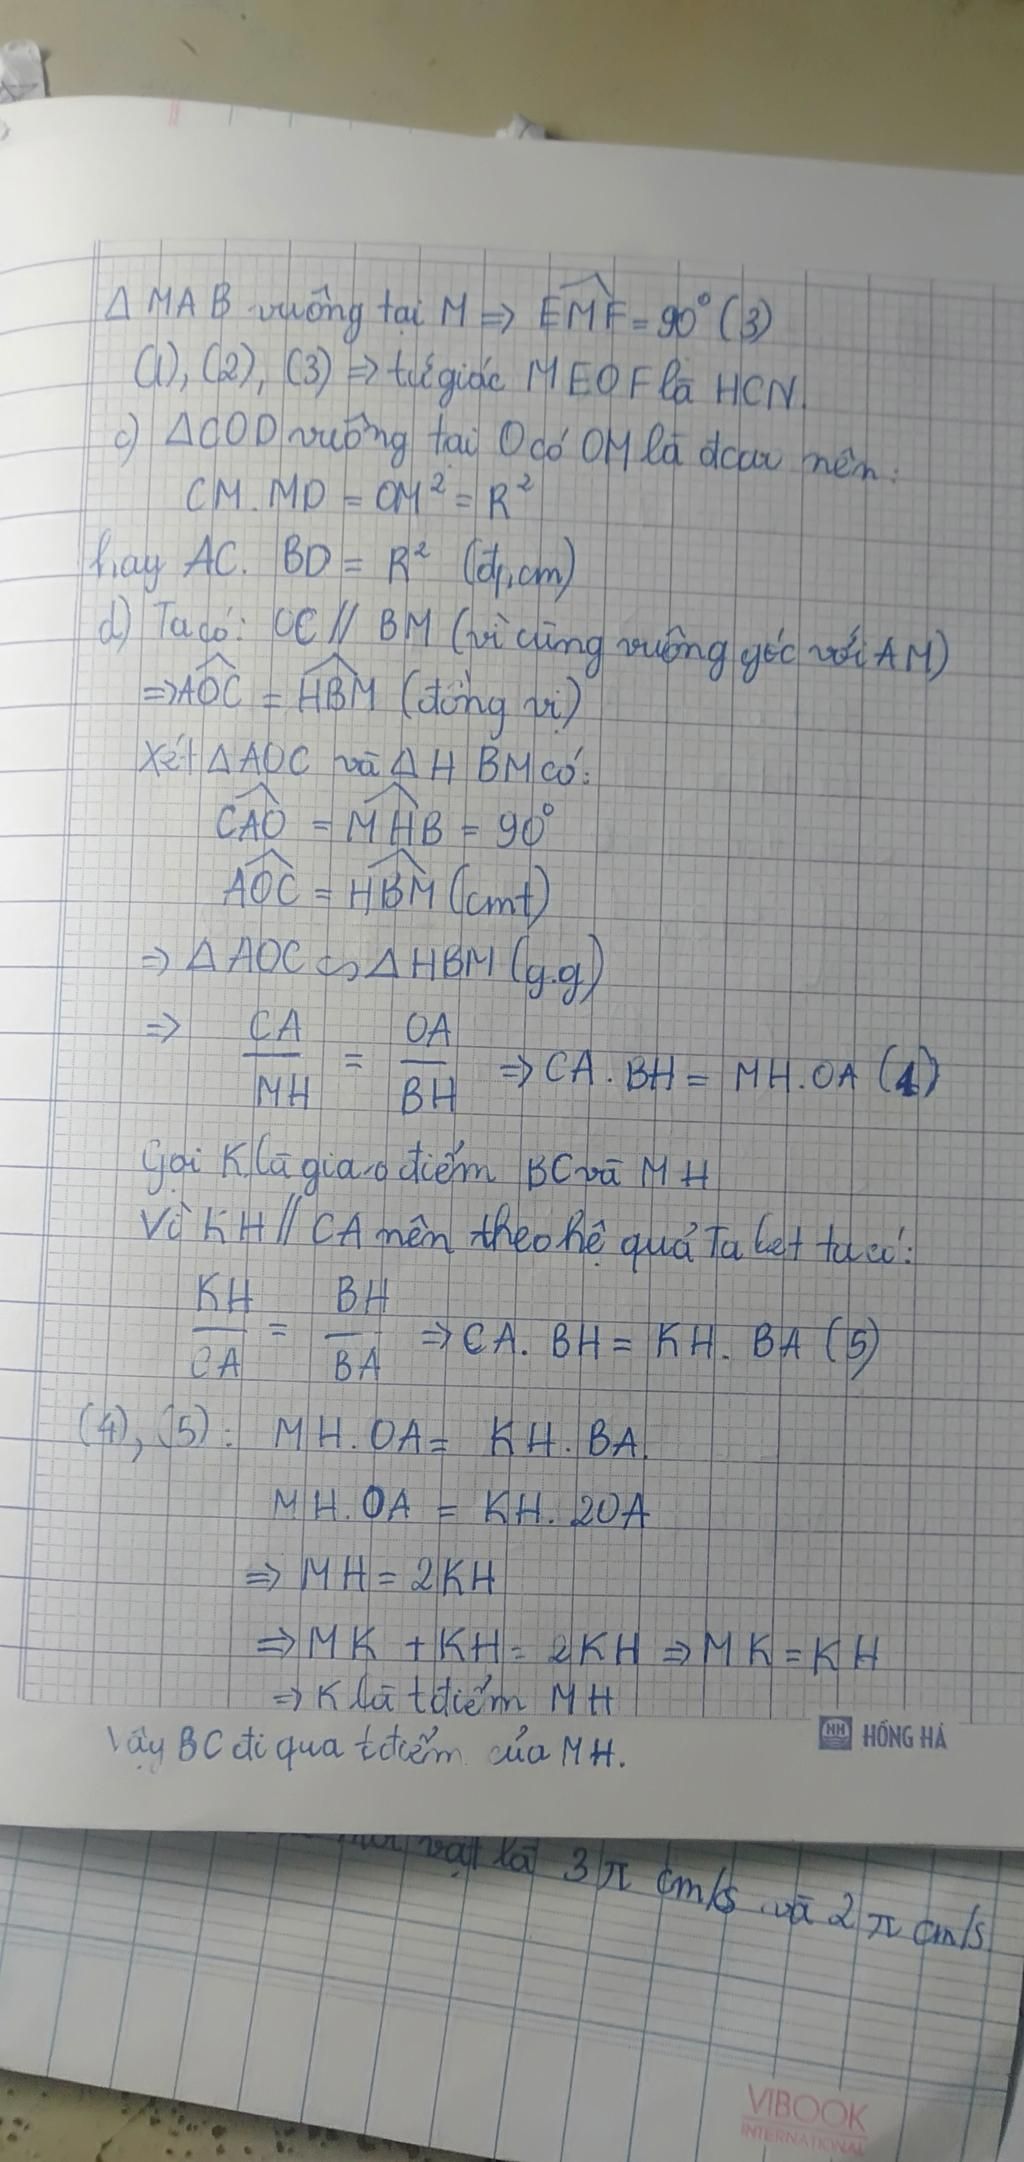 Δ MAB vuông tại M => EMF = 90° (3)
(1), (2), (3) => tứ giác MEOF là HCN.
c) ΔCOD vuông tại O có OM là đcao nên:
CM.MD = OM² = R²
hay AC. BD = R² (đpcm)
d) Ta có: OC // BM (vì cùng vuông góc với AM)
=> AOC = HBM (đồng vị)
Xét Δ AOC và Δ HBM có:
CAO = MHB = 90°
AOC = HBM (cmt)
=> Δ AOC ∽ Δ HBM (g.g)
=> CA/MH = OA/BH => CA.BH = MH.OA (4)
Gọi K là giao điểm BC và MH
Vì KH // CA nên theo hệ quả Ta let ta có:
KH/CA = BH/BA => CA. BH = KH. BA (5)
(4), (5): MH.OA = KH.BA.
MH.OA = KH. 2OA
=> MH = 2KH
=> MK + KH = 2KH => MK = KH
=> K là tđiểm MH
HH HỒNG HÀ
Vậy BC đi qua tđiểm của MH.
vật là 3π cm/s và 2π cm/s
VIBOOK
INTERNATIONAL